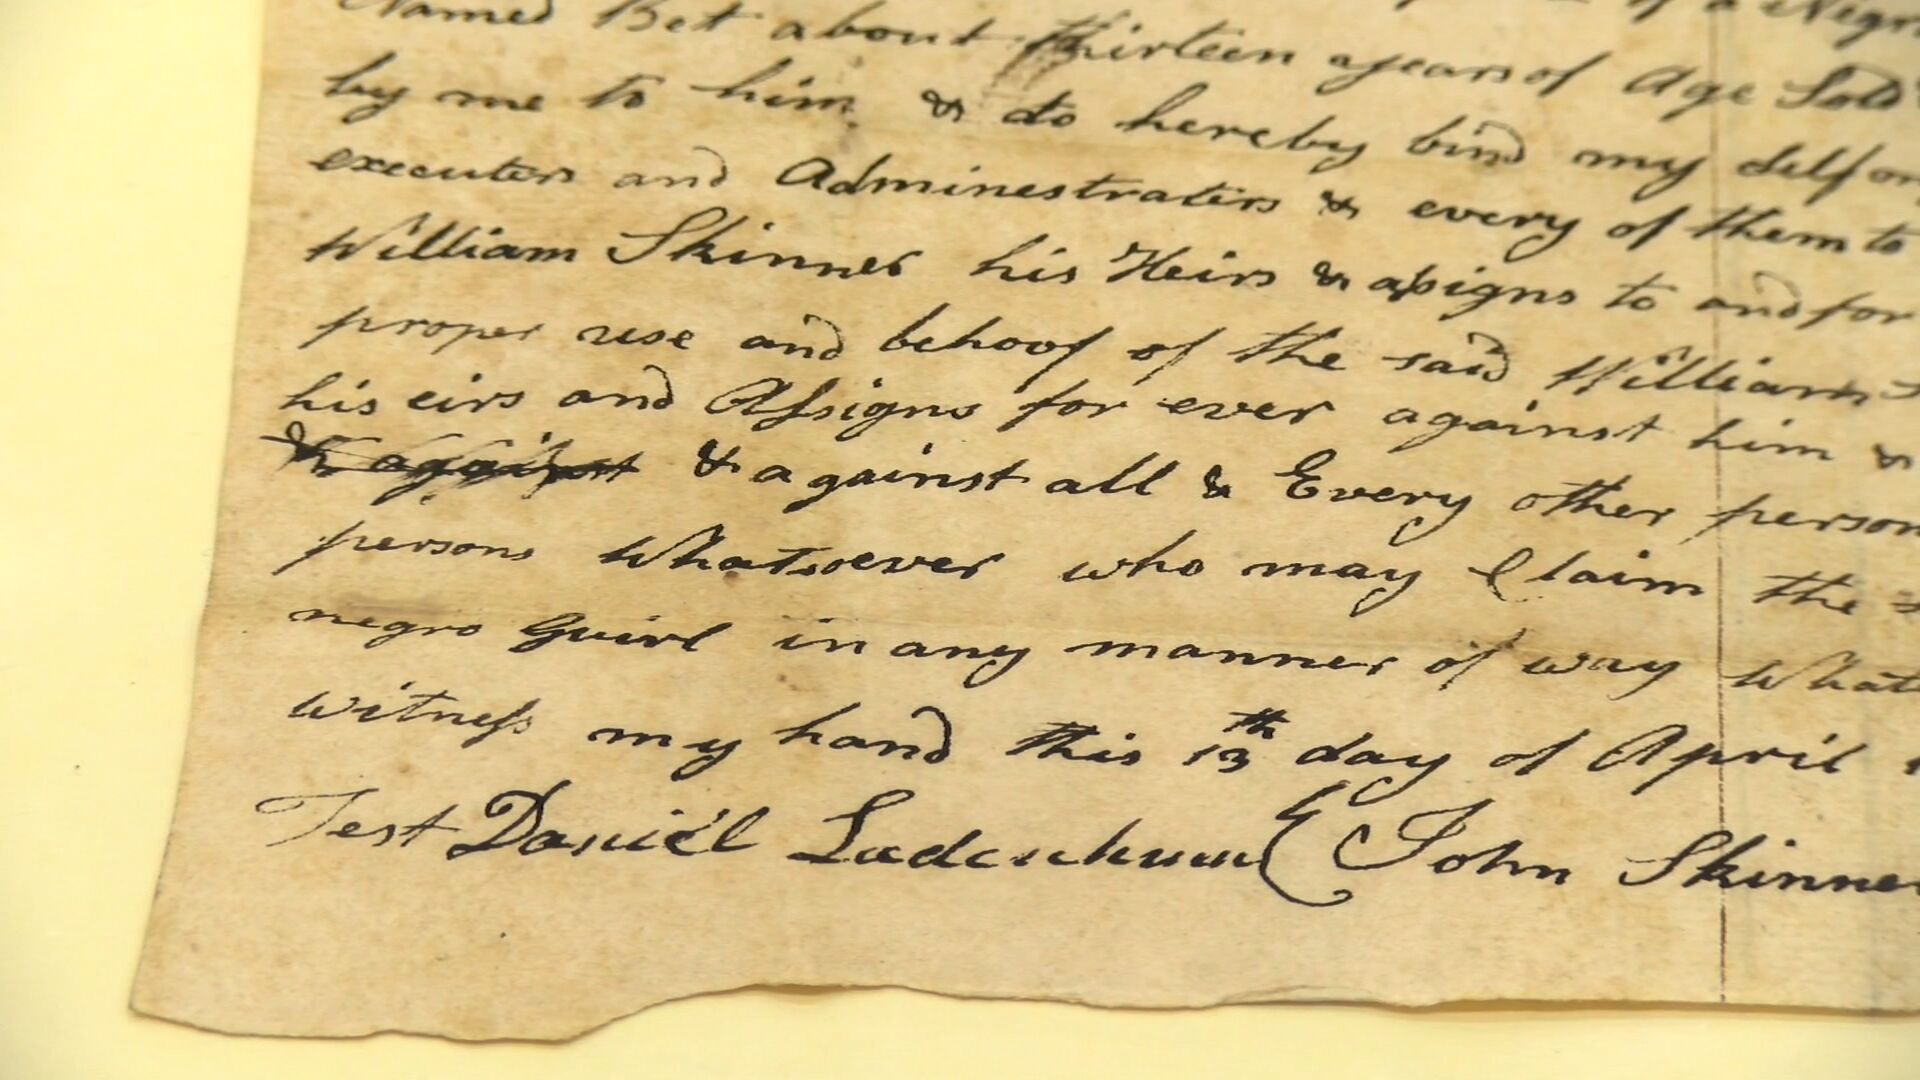 of a Negro
Named Bet about thirteen years of Age Sold
by me to him & do hereby bind my Self or
executers and Adminestraters & every of them to
William Skinner his Heirs & assigns to and for
proper use and behoof of the said William
his eirs and Assigns for ever against him &
& against & against all & Every other person
persons Whatsoever who may Claim the
negro Guirl in any manner of way What
witness my hand this 13th day of April
Test Daniel John Skinner